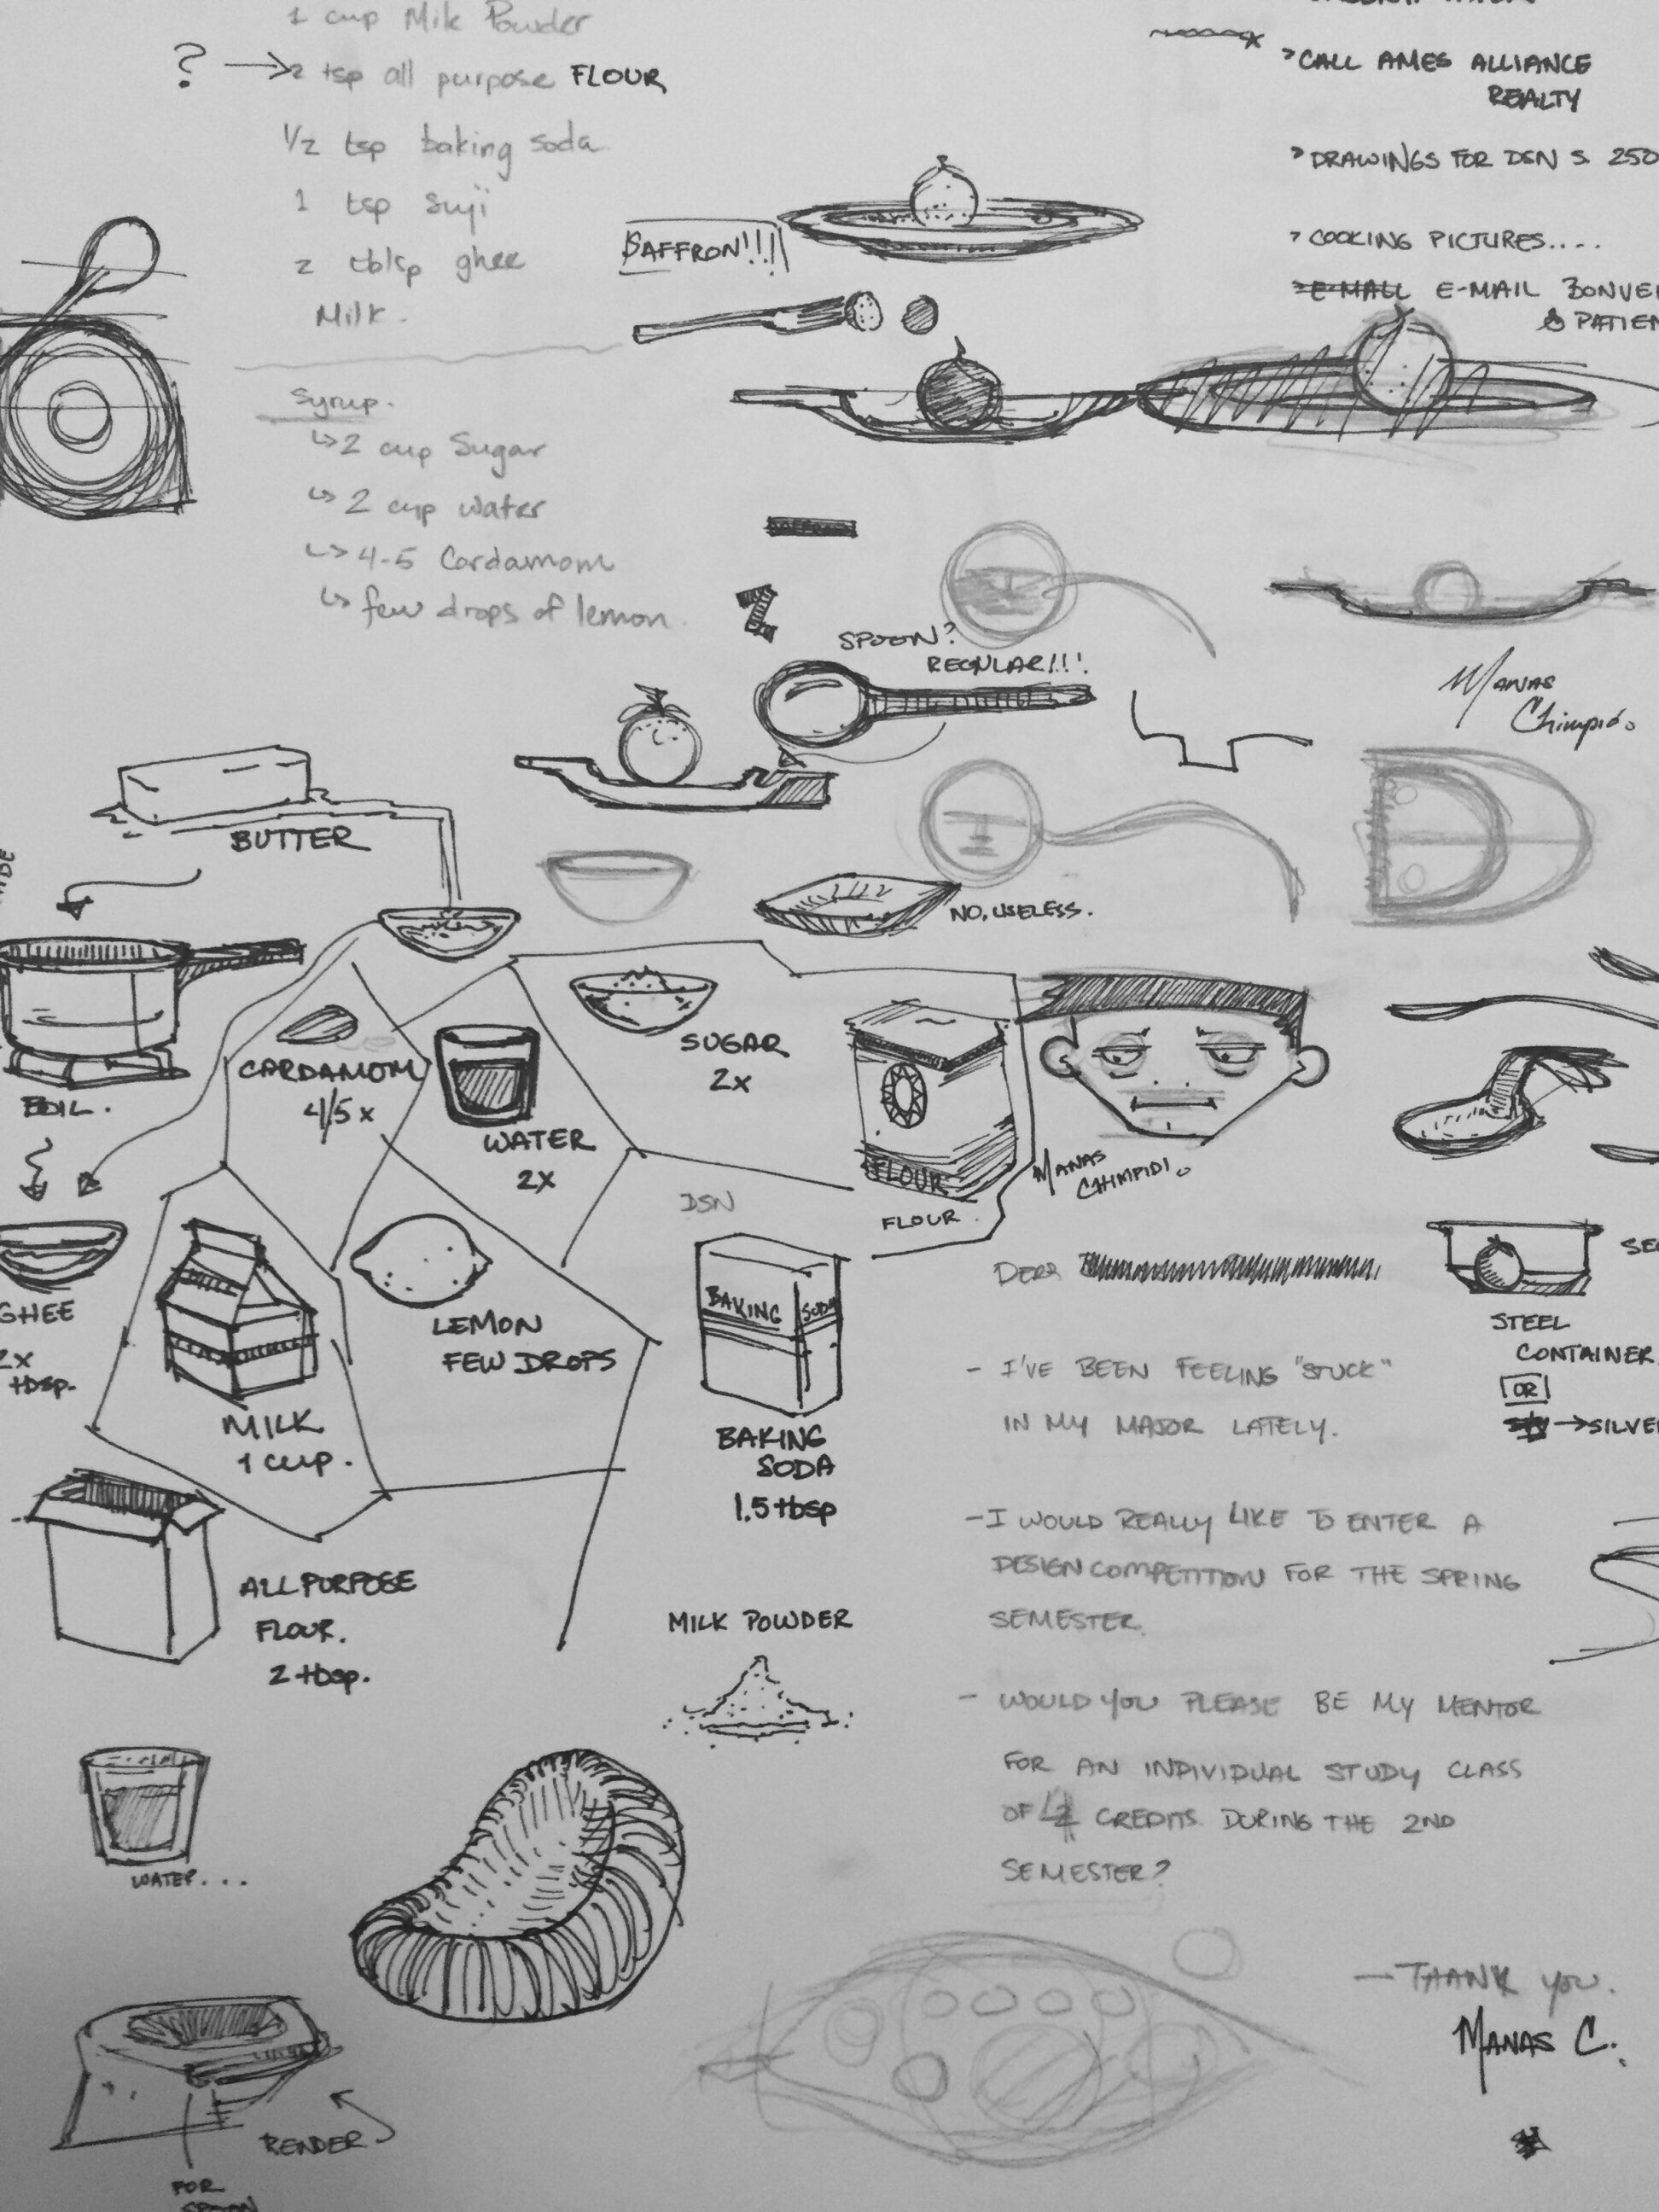 1 cup Milk Powder
?
2 tsp all purpose FLOUR
1/2 tsp baking soda
1 tsp suji
2 tblsp ghee
Milk.
Syrup.
2 cup Sugar
2 cup water
4-5 Cardamom
few drops of lemon.
SAFFRON!!!
CALL AMES ALLIANCE
REALTY
DRAWINGS FOR DSN S. 250
COOKING PICTURES....
E-MAIL E-MAIL
SPOON?
REGULAR!!!
MANAS
Chimpidi.
BUTTER
NO, USELESS.
BOIL.
CARDAMOM
4/5 x
WATER
2x
SUGAR
2x
FLOUR
FLOUR.
MANAS
CHIMPIDI.
GHEE
2x
tbsp.
MILK
MILK
1 cup.
LEMON
FEW DROPS
DSN
BAKING SODA
BAKING
SODA
1.5 tbsp
ALL PURPOSE
FLOUR.
2 tbsp.
MILK POWDER
WATER...
RENDER
FOR
SPOON
STEEL
CONTAINER
OR
- I'VE BEEN FEELING "STUCK"
IN MY MAJOR LATELY.
- I WOULD REALLY LIKE TO ENTER A
DESIGN COMPETITION FOR THE SPRING
SEMESTER.
- WOULD YOU PLEASE BE MY MENTOR
FOR AN INDIVIDUAL STUDY CLASS
OF CREDITS DURING THE 2ND
SEMESTER?
- THANK YOU.
MANAS C.